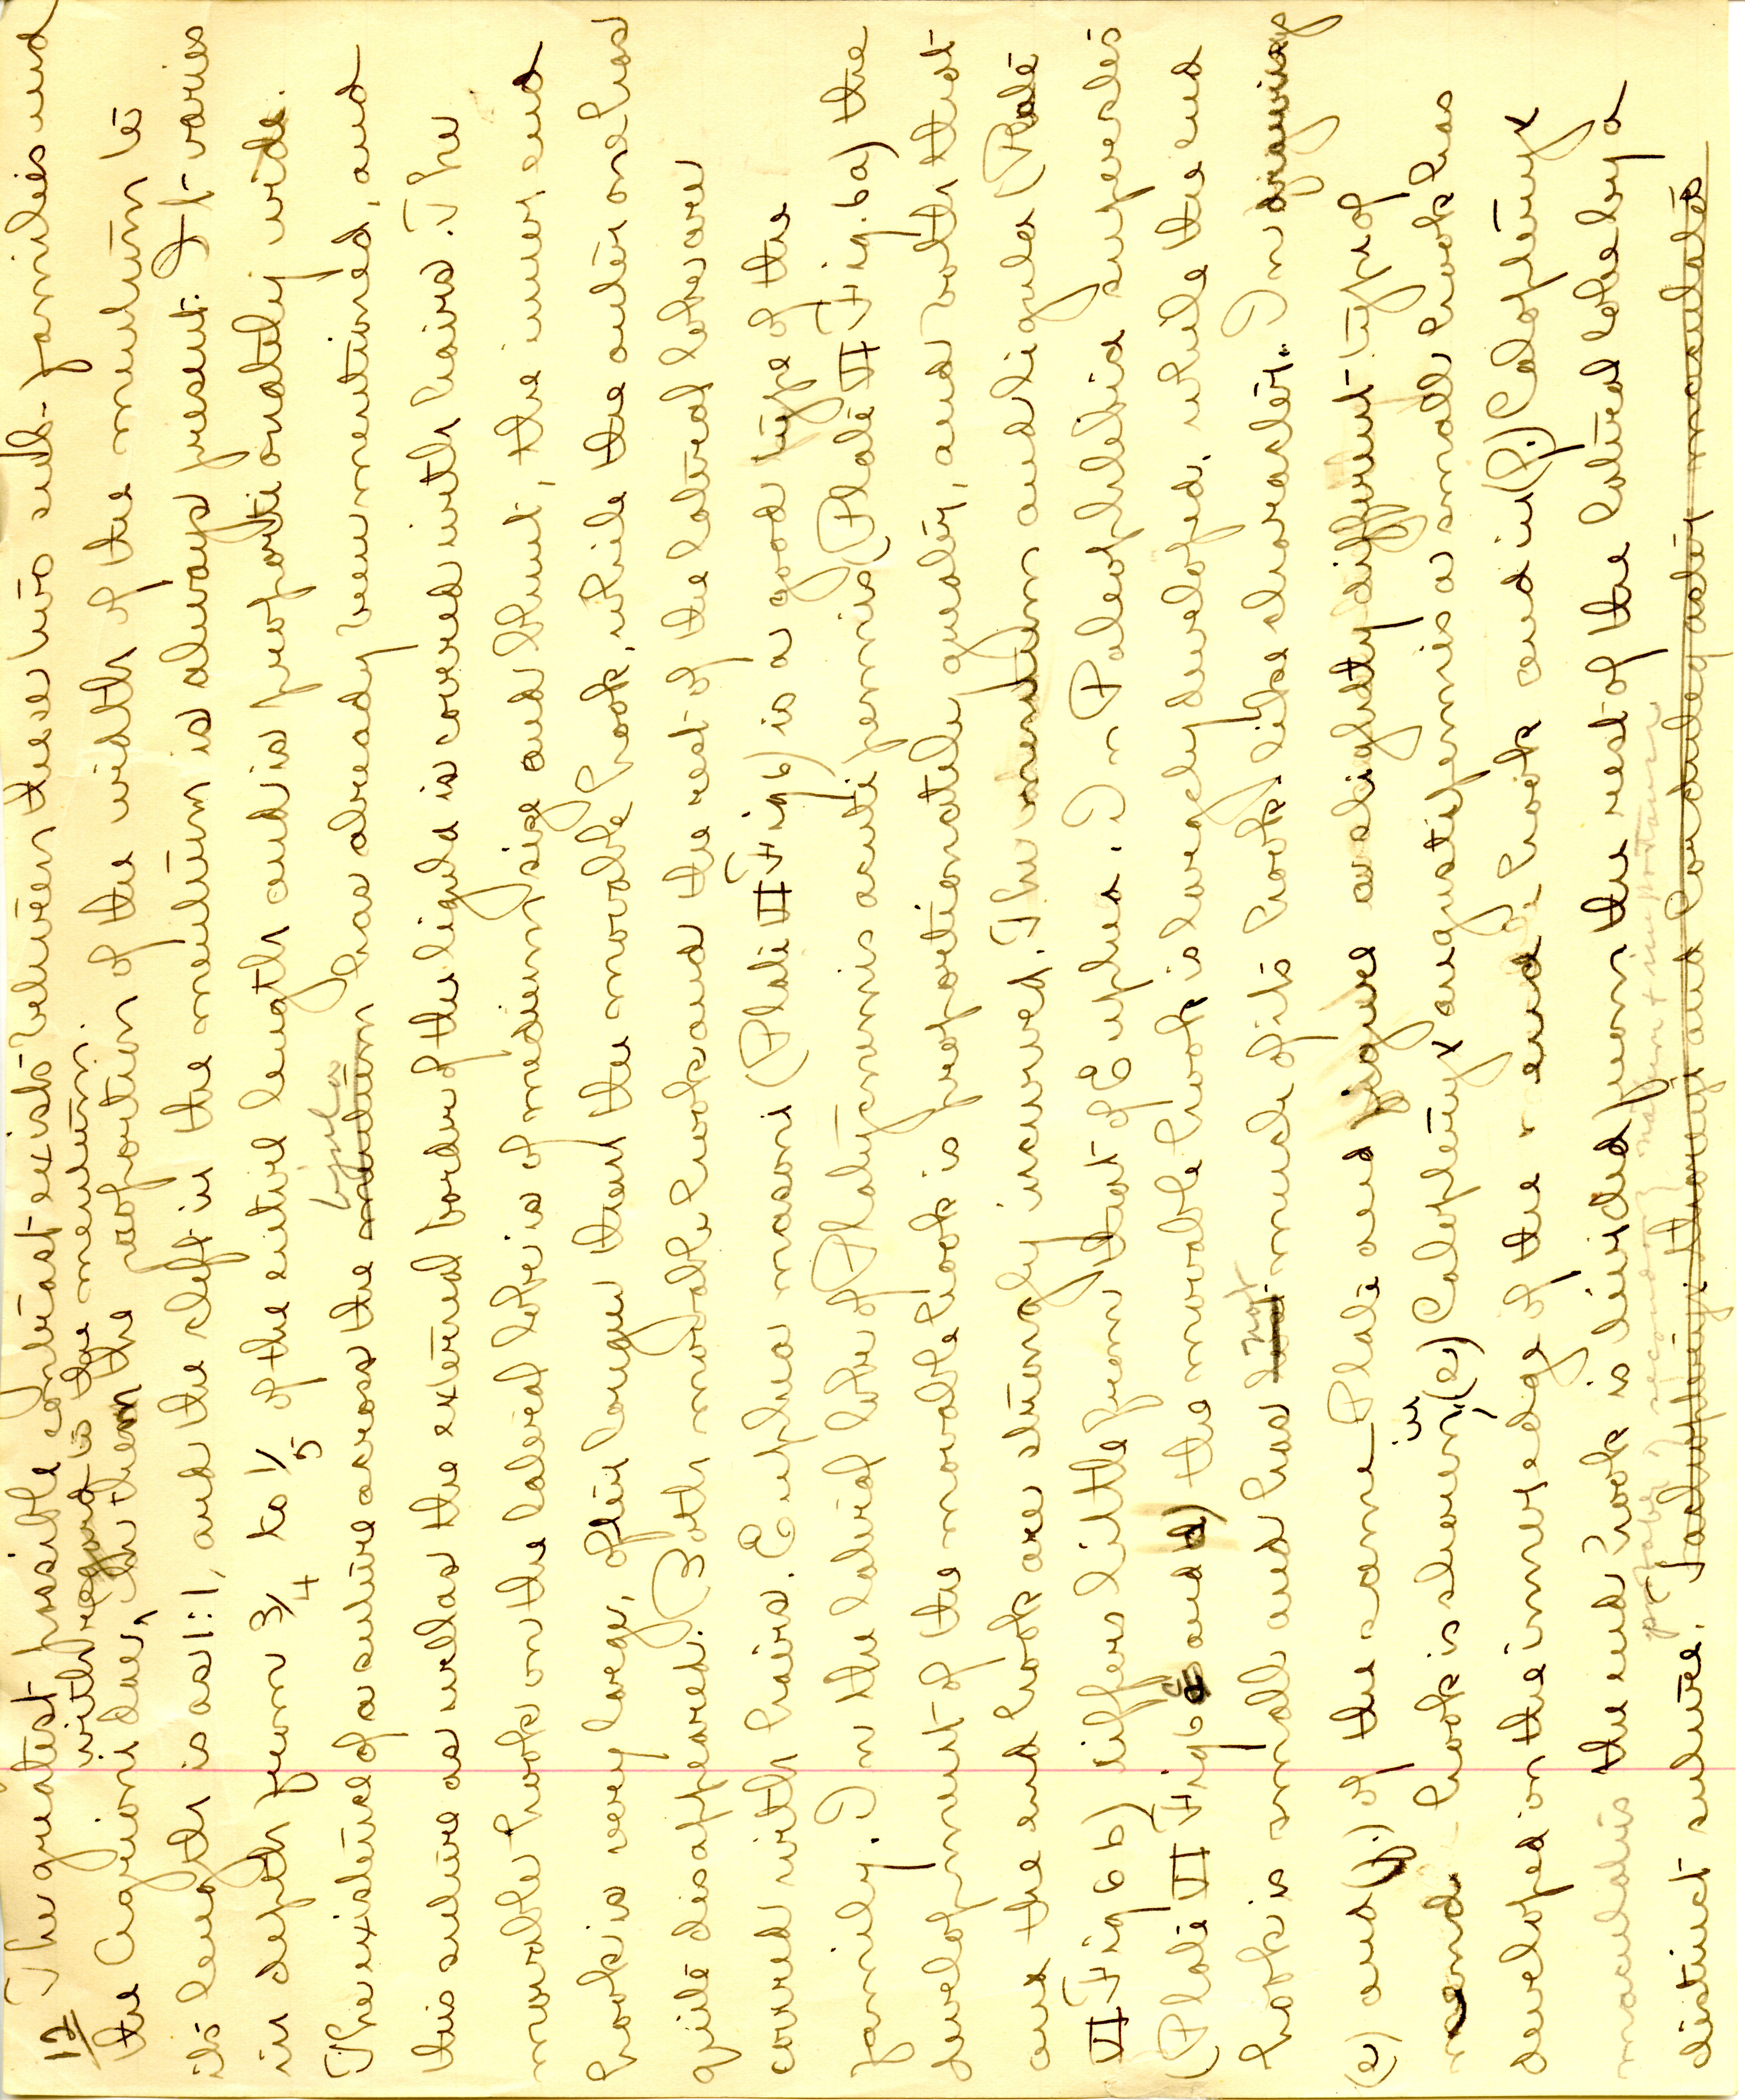 12
The greatest possible contrast exists between these two sub-families and
with regard to the mentum.
the Agrionidae, in them the proportion of the width of the mentum to
its length is as 1:1, and the cleft in the mentum is always present. It varies
in depth from 3/4 to 1/5 of the entire length and is proportionately wide.
ligula
The existence of a suture across the mentum has already been mentioned, and
this suture as well as the external border of the ligula is covered with hairs. The
movable hook on the lateral lobe is of medium size and blunt, the inner end
hook is very large, often longer than the movable hook, while the outer one has
quite disappeared. Both movable hook and the rest of the lateral lobe are
covered with hairs. Euphea masoni (Plate II Fig 6) is a good type of the
family. In the lateral lobe of Platycnemis acutipennis (Plate VI Fig. 6a) the
development of the movable hook is proportionately greater, and both that
and the end hook are strongly incurved. The mentum and ligula (Plate
VI Fig 6b) differs little from that of Euphea. In Paleophlebia superstes
(Plate VI Fig 6 c and d) the movable hook is largely developed, while the end
hook is small and has not much of its hook-like character. In drawings
(e) and (f.) of the same Plate and figure a slightly different type of
end hook is shown, in (e) Calopteryx angustipennis a small hook has
developed on the inner edge of the end hook and in (f.) Calopteryx
maculatis the end hook is divided from the rest of the lateral lobe by a
probably secondary nature + importance
distinct suture.